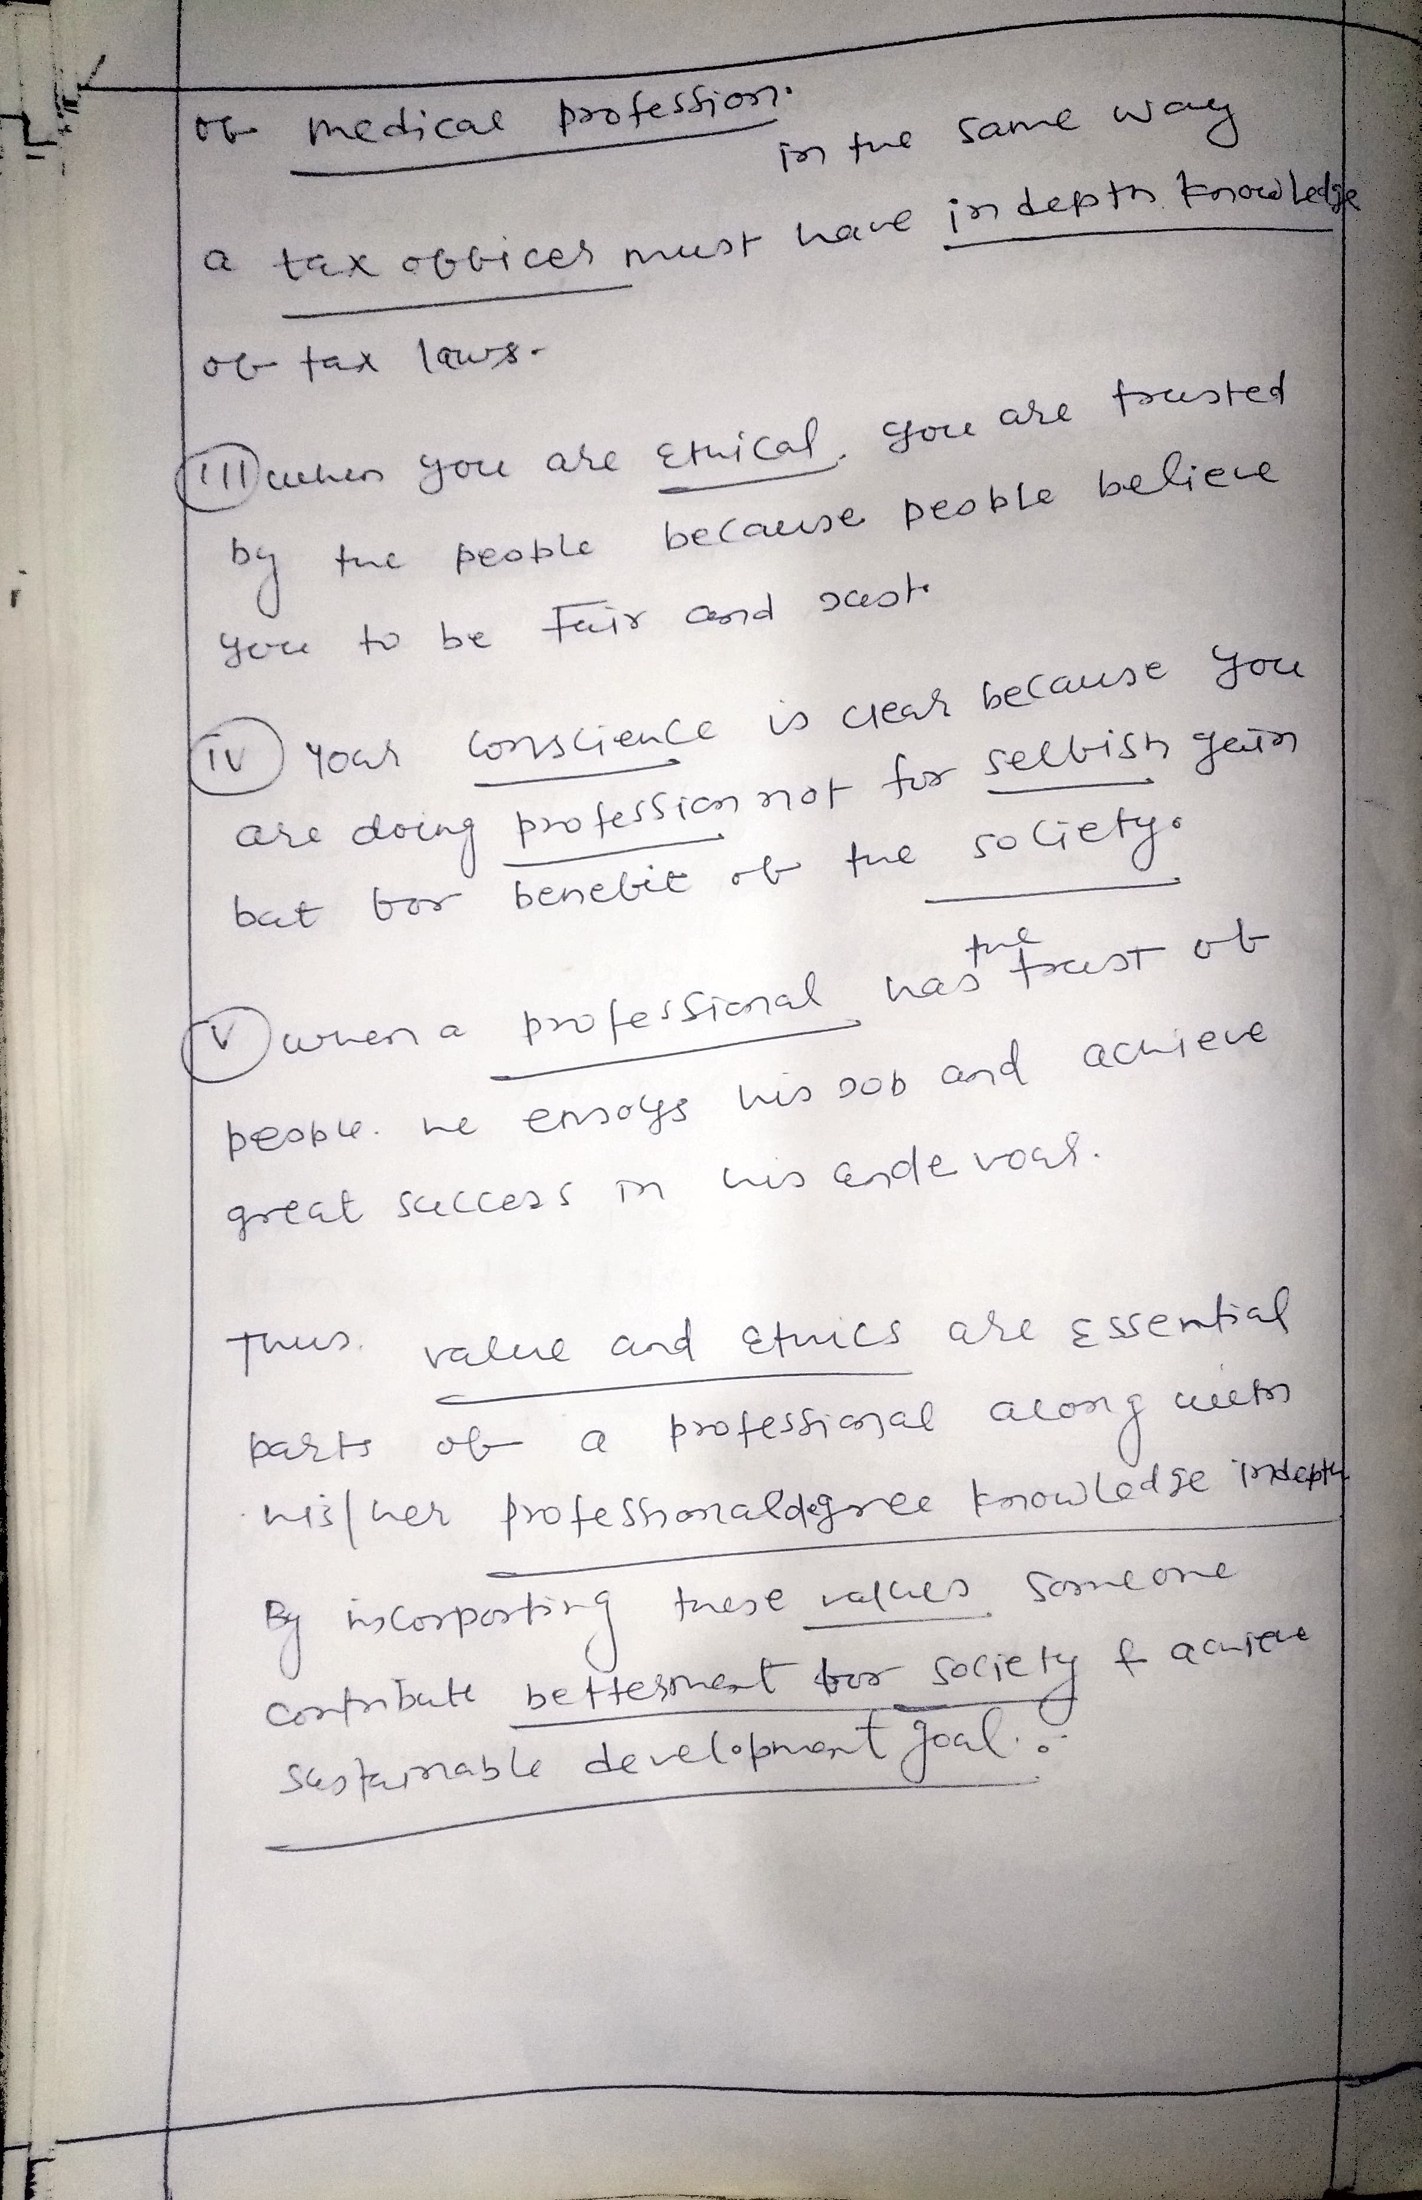 of medical profession. in the same way
a tax officer must have indepth knowledge
of tax laws.
III when you are Ethical, you are trusted
by the people because people believe
you to be Fair and just.
iv Your conscience is clear because you
are doing profession not for selfish gain
but for benefit of the society.
v when a professional has the trust of
people. he enjoys his job and achieve
great success in his andevour.
Thus. value and Ethics are Essential
parts of a professional along with
his/her professional degree knowledge indepth
By incorporting these values someone
contribute betterment for society & achieve
sustainable development goal.